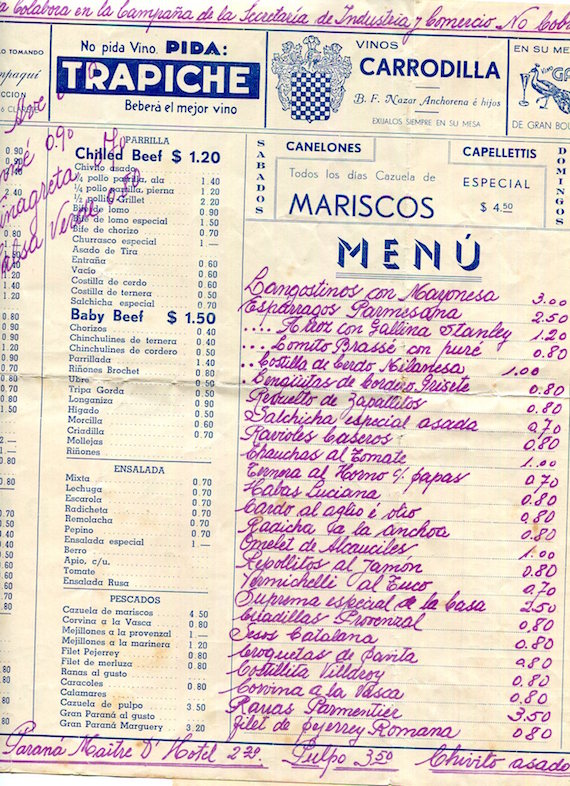 Colabora en la Campaña de la Secretaría de Industria y Comercio No Cob
TOMANDO
CCION
No pida Vino. PIDA:
TRAPICHE
Beberá el mejor vino
VINOS
CARRODILLA
B. F. Nazar Anchorena é hijos
EXIJALOS SIEMPRE EN SU MESA
EN SU ME
DE GRAN BOU
0.90
Vinagreta
Salsa Verde
PARRILLA
Chilled Beef $ 1.20
Chivito asado
¼ pollo parrilla, ala 1.40
¼ pollo parrilla, pierna 1.20
½ pollo Grillet 2.20
Bife de lomo 0.90
Bife de lomo especial 1.50
Bife de chorizo 0.70
Churrasco especial 1.—
Asado de Tira
Entraña 0.60
Vacío 0.60
Costilla de cerdo 0.60
Costilla de ternera 0.50
Salchicha especial 0.70
Baby Beef $ 1.50
Chorizos 0.40
Chinchulines de ternera 0.40
Chinchulines de cordero 0.50
Parrillada 1.40
Riñones Brochet 0.80
Ubre 0.50
Tripa Gorda 0.50
Longaniza 0.90
Higado 0.50
Morcilla 0.60
Criadilla 0.70
Mollejas
Riñones
ENSALADA
Mixta 0.70
Lechuga 0.70
Escarola 0.70
Radicheta 0.70
Remolacha 0.70
Pepino 0.70
Ensalada especial 1.—
Berro
Apio, c/u.
Tomate
Ensalada Rusa
PESCADOS
Cazuela de mariscos 4.50
Corvina a la Vasca 0.80
Mejillones a la provenzal 1.—
Mejillones a la marinera 1.20
Filet Pejerrey 0.80
Filet de merluza 0.80
Ranas al gusto
Caracoles 0.80
Calamares
Cazuela de pulpo 3.50
Gran Paraná al gusto
Gran Paraná Marguery 3.20
SABADOS
CANELONES
CAPELLETTIS
Todos los días Cazuela de
MARISCOS
ESPECIAL
$ 4.50
DOMINGOS
MENÚ
Langostinos con Mayonesa 3.00
Espárragos Parmesana 2.50
.... Arroz con Gallina Stanley 1.20
.... Lomito Brassé con puré 0.80
.. Costilla de Cerdo Milanesa 1.00
.. Lengüitas de Cordero Grisete 0.80
Revuelto de Zapallitos 0.80
Salchicha especial asada 0.70
Ravioles Caseros 0.80
Chauchas al Tomate 1.00
Ternera al Horno c/ papas 0.70
Habas Luciana 0.80
Cardo al aglio é olio 0.80
Radicha a la anchoa 0.80
Omelet de Alcauciles 1.00
Repollitos al Jamón 0.80
Vermichelli al Tuco 0.70
Suprema especial de la Casa 2.50
Criadillas Provenzal 0.80
Sesos Catalana 0.80
Croquetas de 0.80
Costillita Villaroy 0.80
Corvina a la Vasca 0.80
Ranas Parmentier 3.50
Filet de pejerrey Romana 0.80
Paraná Maitre D' Hotel 2.20 Pulpo 3.50 Chivito asado